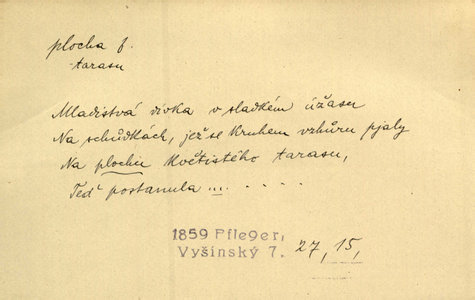 plocha f.
tarasu
Mladistvá dívka v sladkém úžasu
Na schůdkách, jež se kruhem vzhůru pjaly
Na plochu květistého tarasu,
Teď postanula ... . . . . .
1859 Pfleger,
Vyšínský 7. 27, 15,